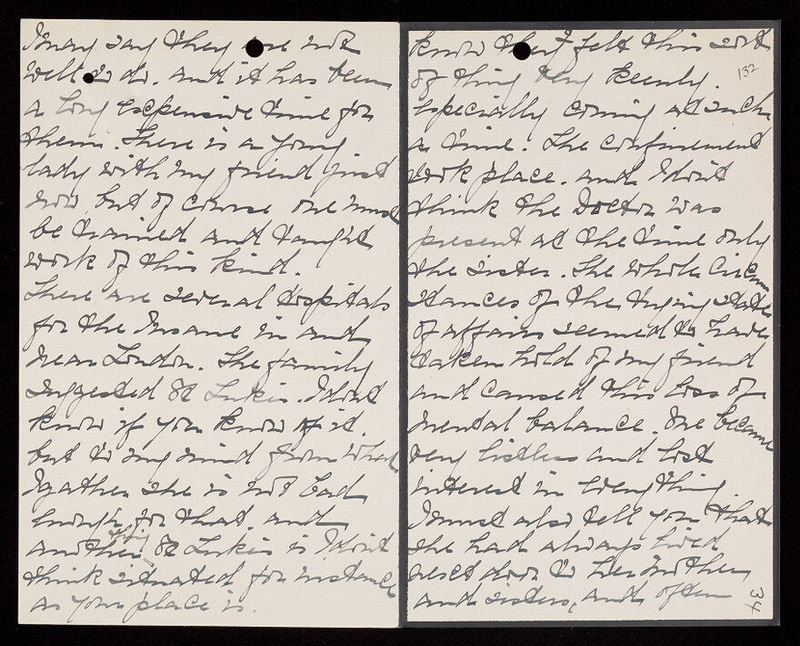 I may say they are not
well to do. and it has been
a long expensive time for
them. There is a young
lady with my friend just
now, but of course one must
be trained and taught
work of this kind.
There are several Hospitals
for the Insane in and
near London. The family
suggested St Lukes. I dont
know if you know of it.
but to my mind from what
I gather she is not bad
enough for that. and
another thing St Lukes is I dont
think situated for instance
as your place is.
know they felt this sort
132
of thing very keenly.
especially coming at such
a time. The confinement
took place. and I dont
think the Doctor was
present at the time only
the sister. The whole Circum
stances of the trying state
of affairs seemed to have
taken hold of my friend
and caused this loss of
mental balance. She became
very listless and lost
interest in everything.
I must also tell you that
she had always lived
next door to her mother
and sisters, and often
34